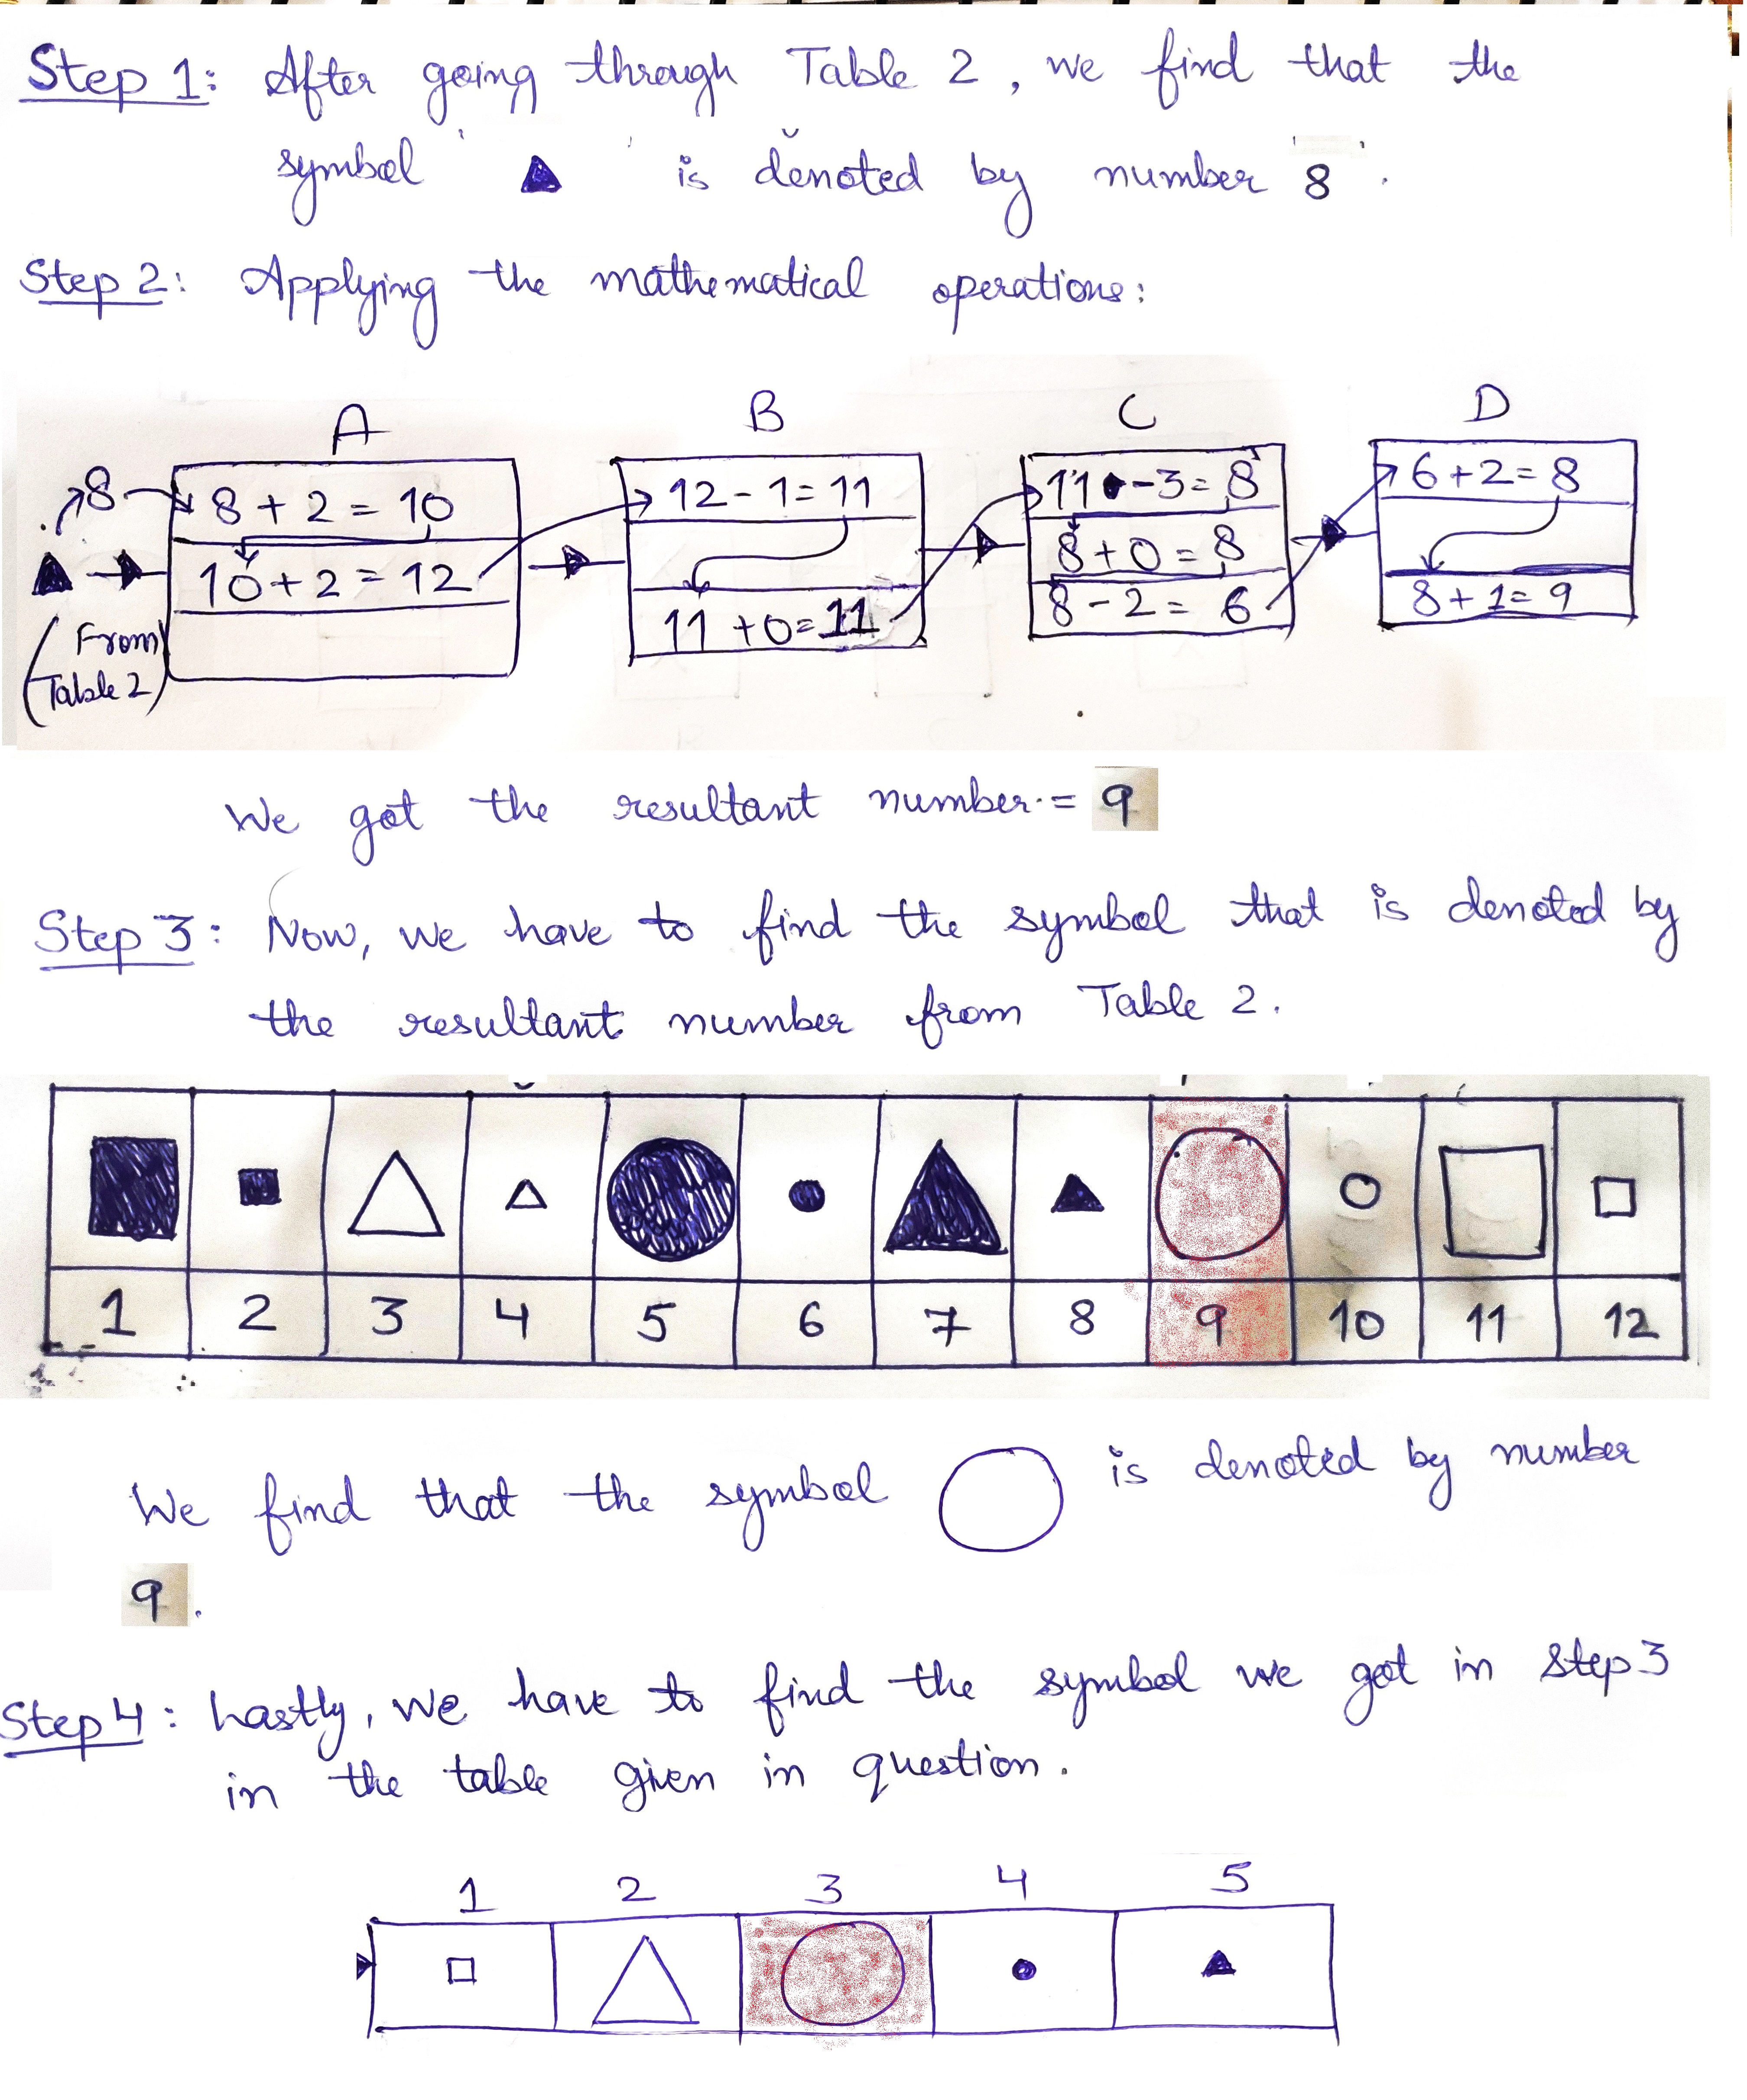 Step 1: After going through Table 2, we find that the
symbol ' ▲ ' is denoted by number '8'.
Step 2: Applying the mathematical operations:
A B C D
8 8 + 2 = 10 12 - 1 = 11 11 - 3 = 8 6 + 2 = 8
10 + 2 = 12 8 + 0 = 8
(From Table 2) 11 + 0 = 11 8 - 2 = 6 8 + 1 = 9
We got the resultant number = 9
Step 3: Now, we have to find the symbol that is denoted by
the resultant number from Table 2.
1 2 3 4 5 6 7 8 9 10 11 12
We find that the symbol ◯ is denoted by number
9.
Step 4: Lastly, we have to find the symbol we got in step 3
in the table given in question.
1 2 3 4 5